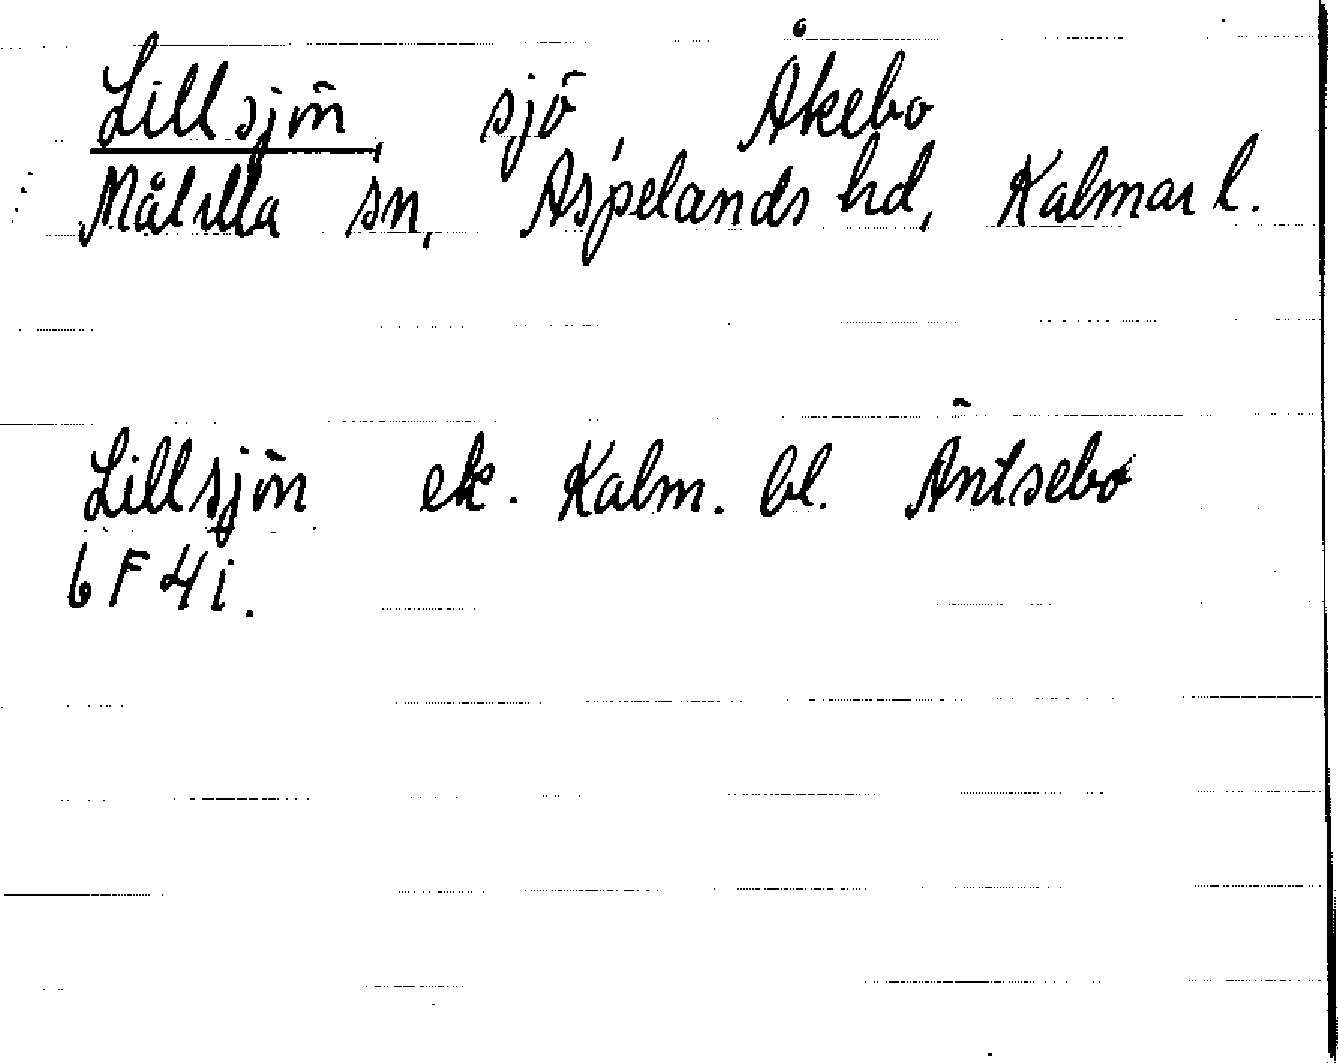 Lillsjön, sjö, Åkebo
Målilla sn, Aspelands hd, Kalmar l.
Lillsjön ek. Kalm. bl. Äntsebo
6 F 4 i.